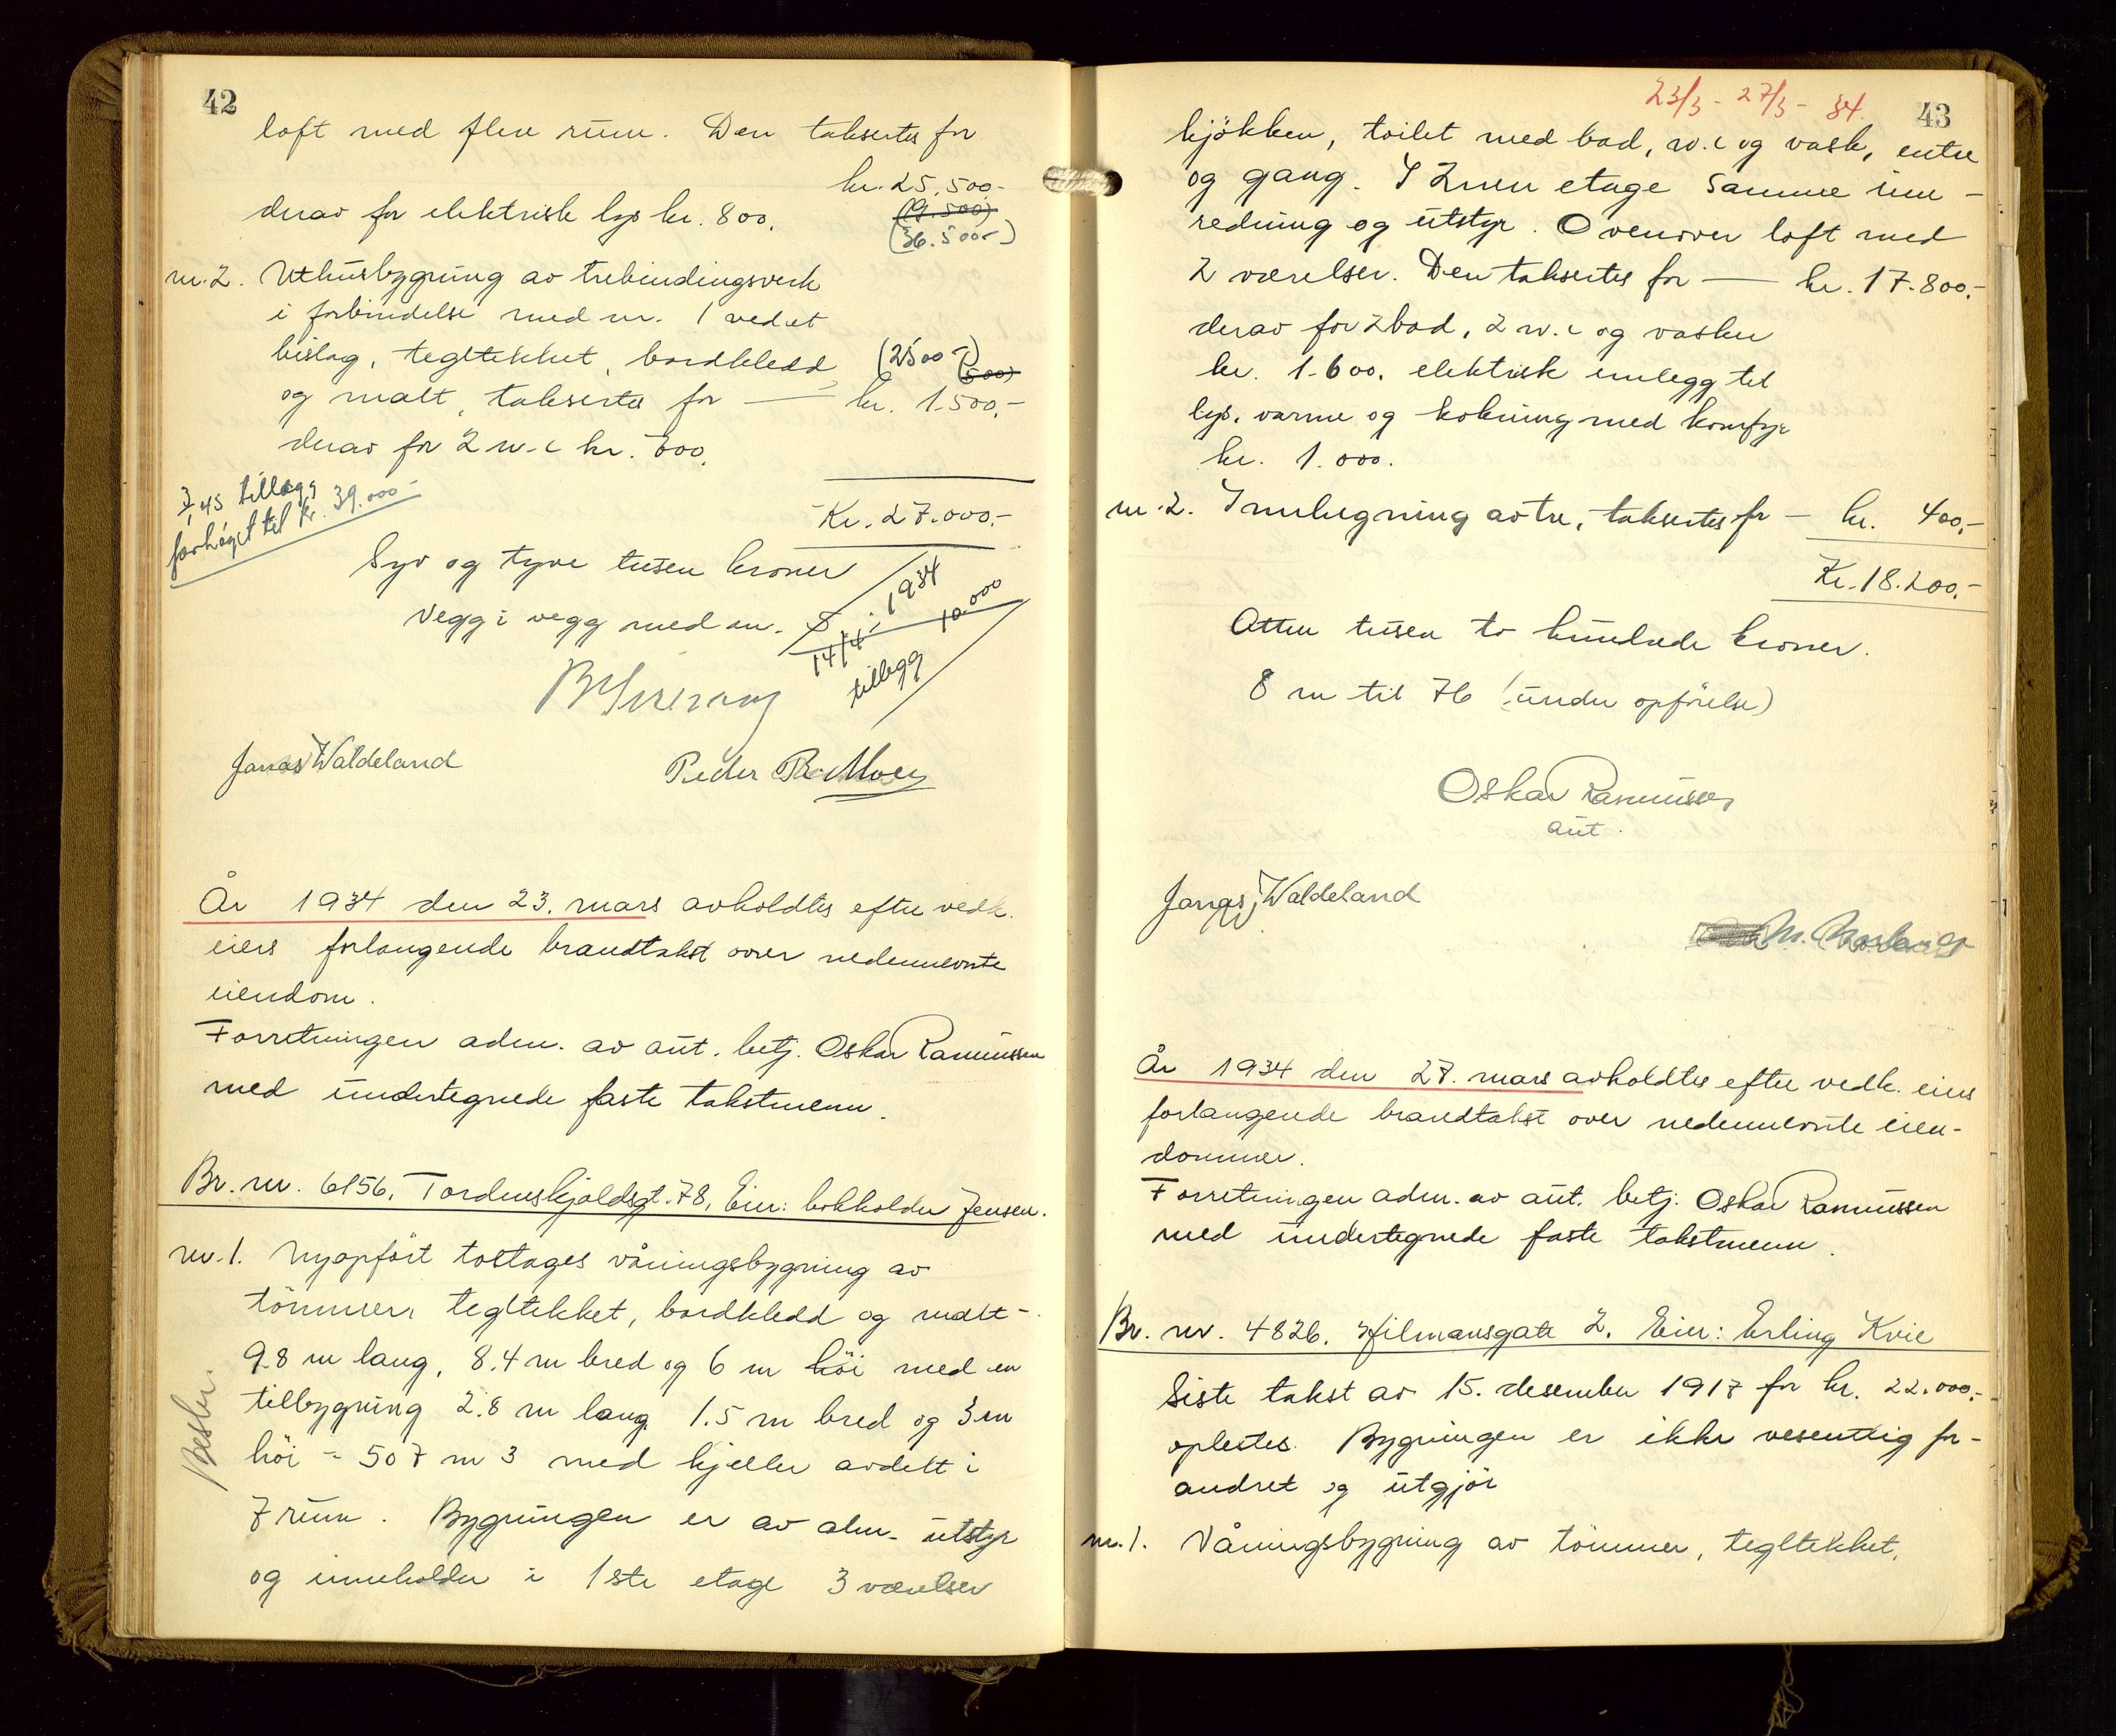 42
loft med flere rum. Den takseres for
kr. 25.500.-
(9.500)
derav for elektrisk lys kr. 800.
(36.500-)
nr. 2. Uthusbygning av trebindingsverk
i forbindelse med nr. 1 ved et
bislag, tegltekket, bordkledd
(2500-)
(500)
og malt, takseres for — kr. 1.500.-
derav for 2 w.c kr. 600.
45 tillegg
forhøget til kr. 39.000-
Kr. 27.000.-
Syv og tyve tusen kroner
Vegg i vegg med nr. 5
14/4 - 1934
tillegg 10.000
Jonas Waldeland
Peder R. Moen
År 1934 den 23. mars avholdtes efter vedk.
eiers forlangende brandtakst over nedennevnte
eiendom.
Forretningen adm. av aut. betj. Oskar Rasmussen
med undertegnede faste takstmenn.
Br. nr. 6156, Tordenskjoldsgt. 78, Eier: bokholder Jensen.
nr. 1. Nyopført toetages våningsbygning av
tømmer, tegltekket, bordkledd og malt -
9.8 m lang, 8.4 m bred og 6 m høi med en
tilbygning 2.8 m lang 1.5 m bred og 3 m
høi = 507 m3 med kjeller avdelt i
Beskr.
7 rum. Bygningen er av alm. utstyr
og inneholder i 1ste etage 3 værelser
23/3 - 27/3 - 34.
43
kjøkken, toilet med bad, w.c og vask, entre
og gang. I 2nen etage samme inn-
redning og utstyr. Ovenover loft med
2 værelser. Den takseres for — kr. 17.800.-
derav for 2 bad, 2 w.c og vasker
kr. 1.600. elektrisk innlegg til
lys, varme og kokning med komfyr
kr. 1.000.
nr. 2. Innhegning av tre, takseres for — kr. 400.-
Kr. 18.200.-
Atten tusen to hundrede kroner.
8 m til 76 (under opførelse)
Oskar Rasmussen
aut.
Jonas Waldeland
År 1934 den 27. mars avholdtes efter vedk. eiers
forlangende brandtakst over nedennevnte eien-
dommer.
Forretningen adm. av aut. betj. Oskar Rasmussen
med undertegnede faste takstmenn.
Br. nr. 4826. Hilmansgate 2. Eier: Erling Kvie
Siste takst av 15. desember 1917 for kr. 22.000.-
oplestes. Bygningen er ikke vesentlig for-
andret og utgjør
nr. 1. Våningsbygning av tømmer, tegltekket,